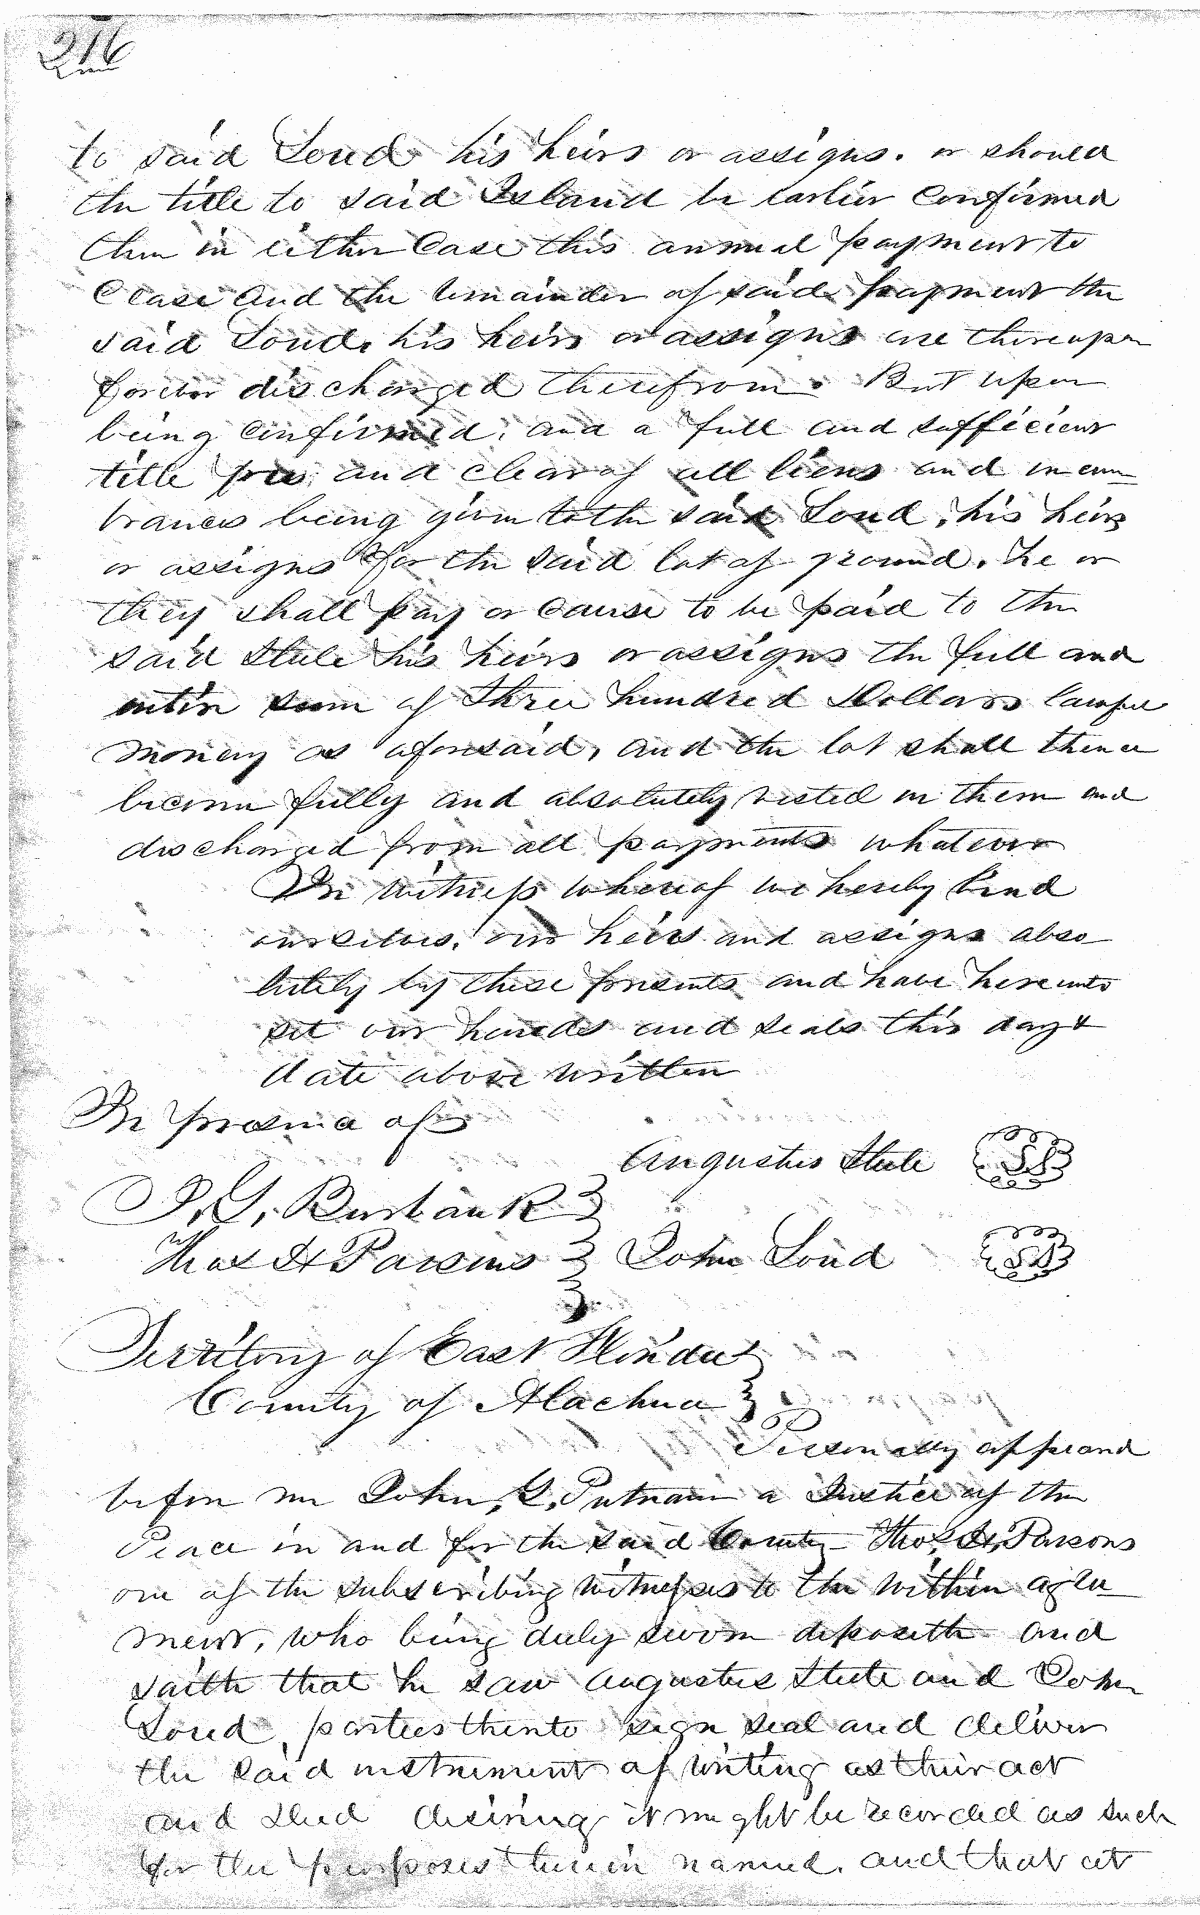 216
to said Loud his heirs or assigns. or should
the title to said Island be earlier confirmed
then in either Case this annual payment to
Cease and the remainder of said payment the
said Loud, his heirs or assigns are thereupon
forever discharged therefrom. But upon
being confirmed, and a full and sufficient
title free and clear of all liens and incum
brances being given to the said Loud, his heirs
or assigns for the said lot of ground, he or
they shall pay or cause to be paid to the
said Steele his heirs or assigns the full and
entire sum of Three hundred Dollars lawful
money as aforesaid, and the lot shall thence
become fully and absolutely vested in them and
discharged from all payments whatever
In witness whereof we hereby bind
ourselves, our heirs and assigns abso
lutely by these presents and have hereunto
set our hands and seals this day &
date above written
In presence of
Augustus Steele LS
J. G. Burbank
Thos H Parsons John Loud LS
Territory of East Florida
County of Alachua
Personally appeared
before me John, G, Putnam a Justice of the
Peace in and for the said County Thos, H, Parsons
one of the subscribing witnesses to the within agree
ment, who being duly sworn deposeth and
saith that he saw Augustus Steele and John
Loud, parties thereto sign seal and deliver
the said instrument of writing as their act
and deed desiring it might be recorded as such
for the purposes therein named. and that at